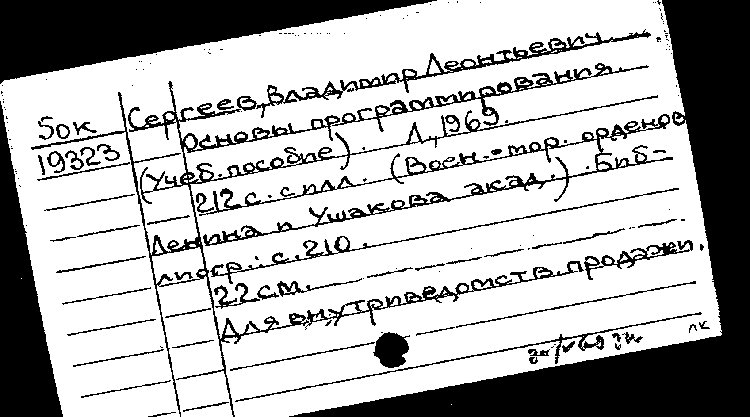 5ок Сергеев, Владимир Леонтьевич.
19323 Основы программирования.
(Учеб. пособие). Л., 1969.
212 с. с илл. (Воен.-мор. орденов
Ленина и Ушакова акад.). Биб-
лиогр.: с. 210.
22 см.
Для внутриведомств. продажи.
лк